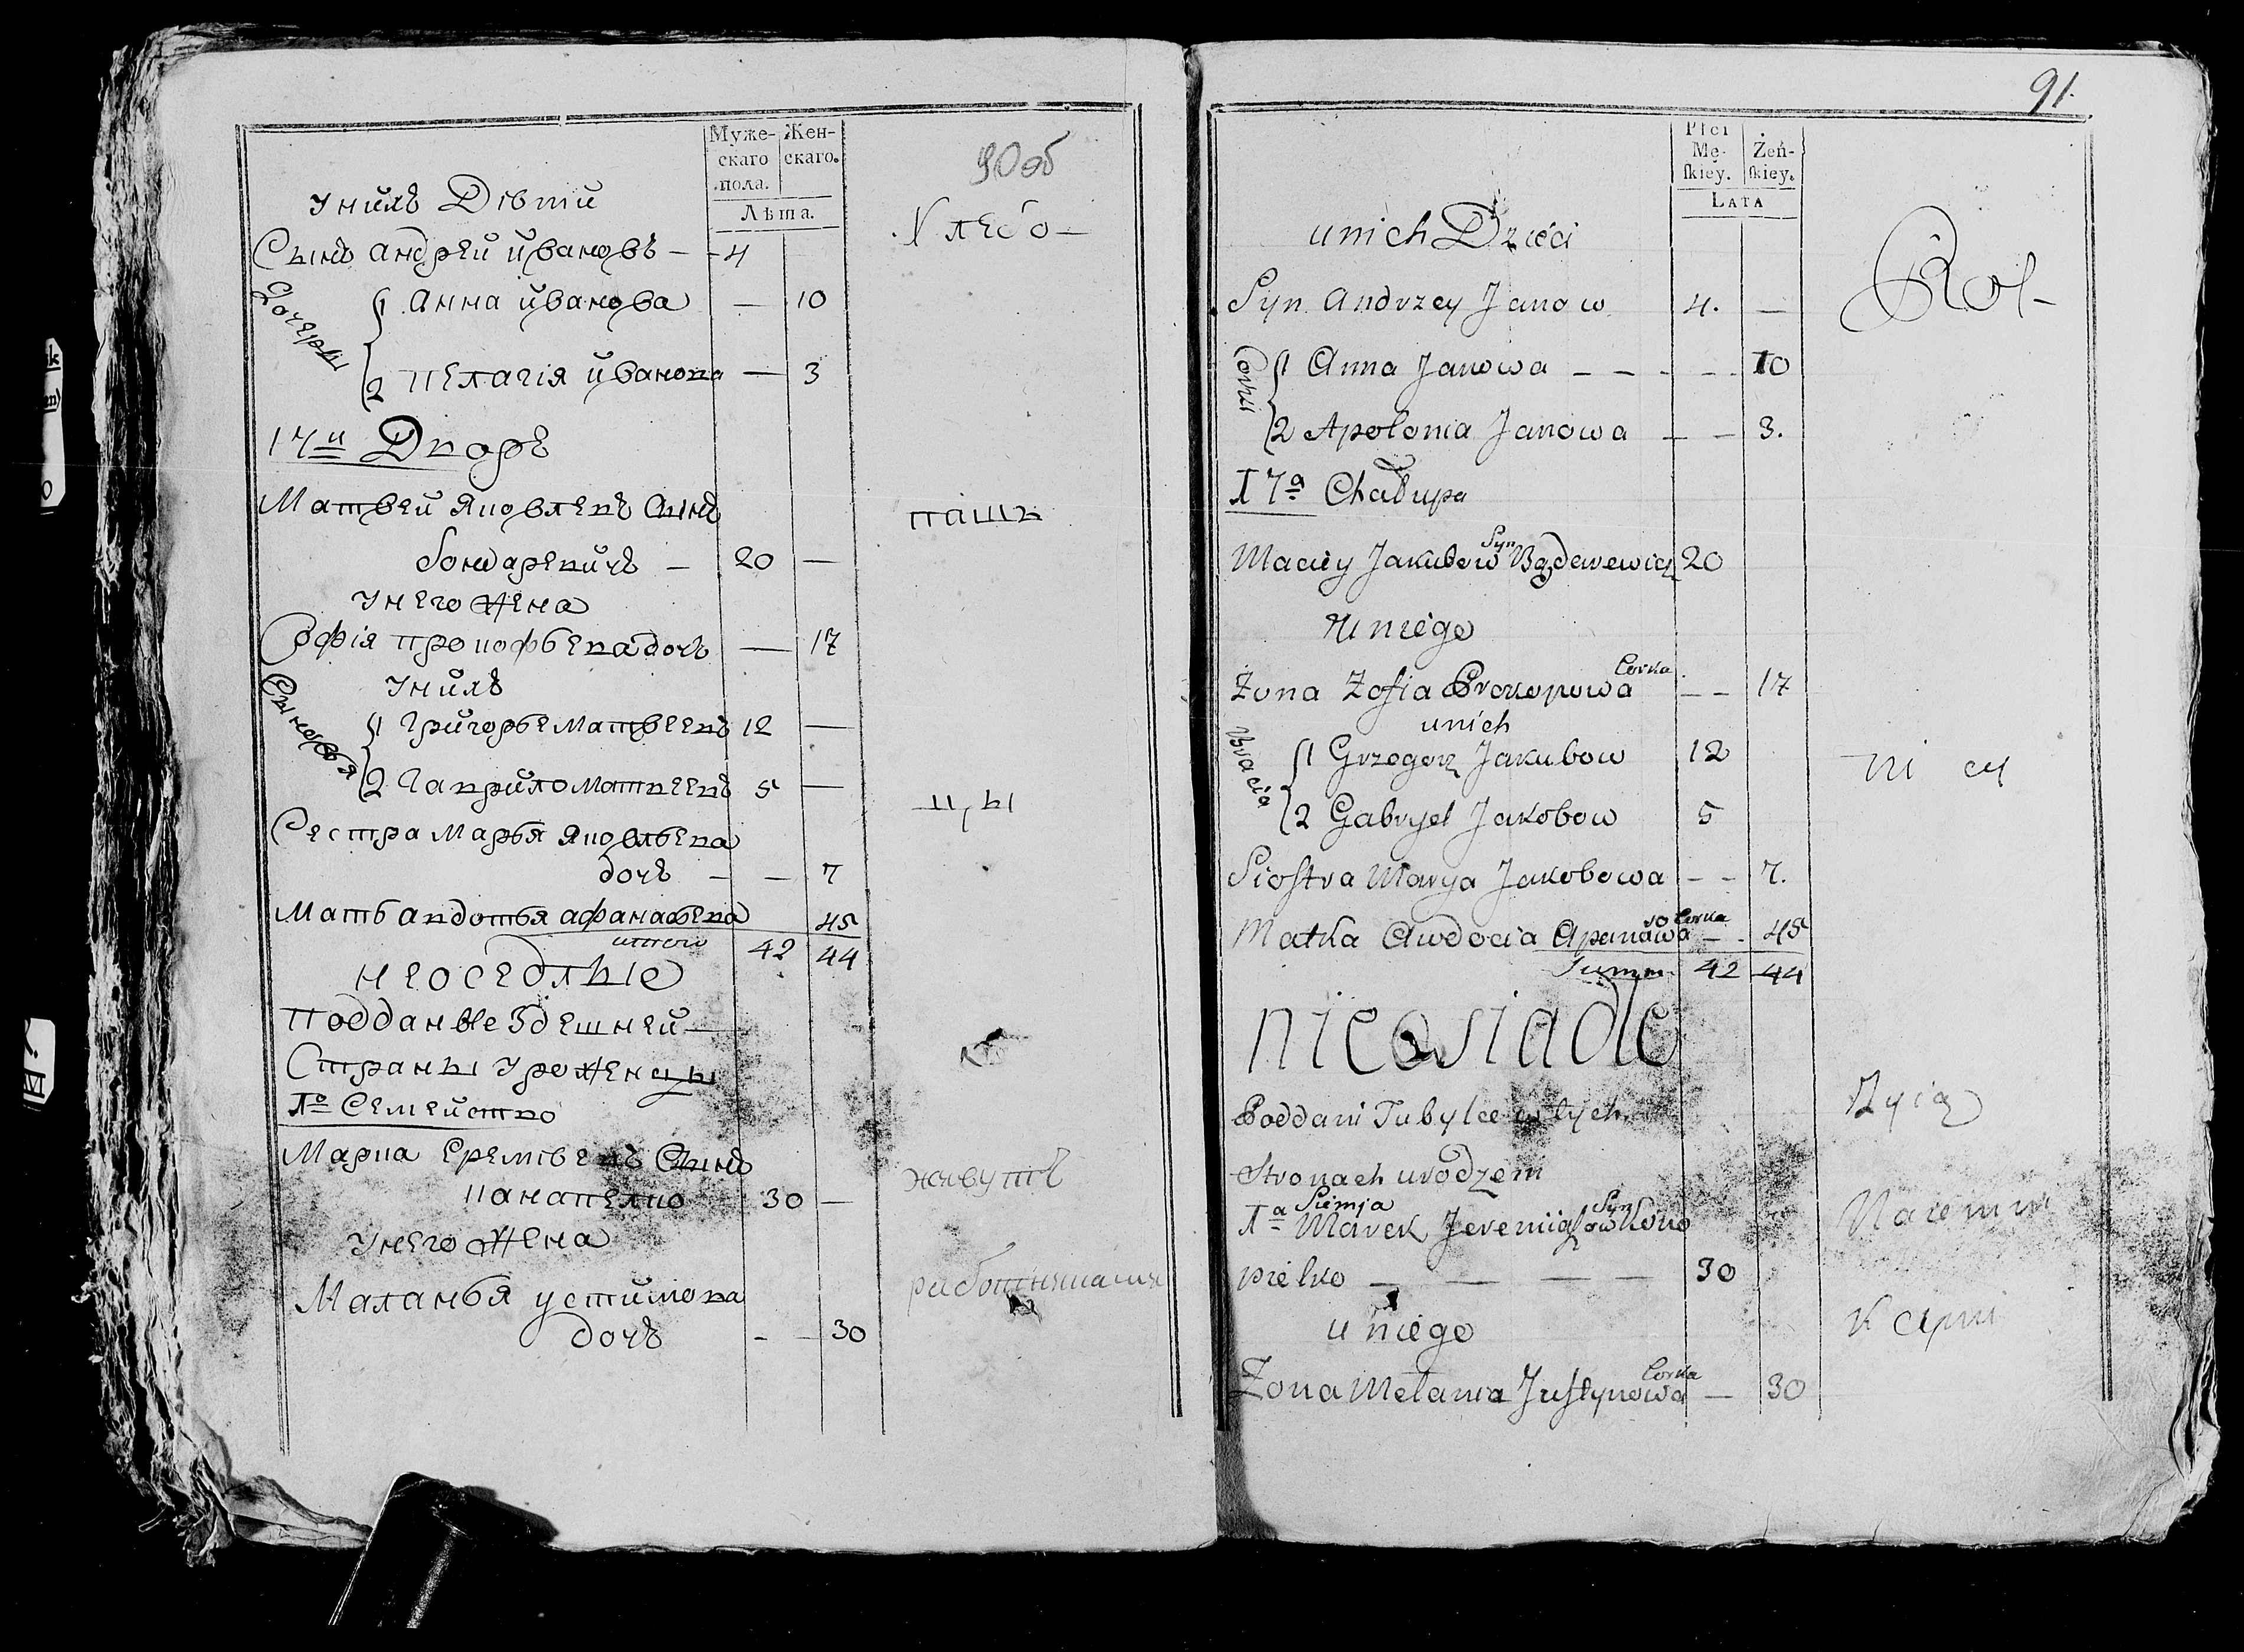 Муже-
скаго
пола.
Жен-
скаго.
Лѣта.
90об
Унихъ Дѣти
Сынъ андрей ивановъ – – 4
Дочери
1 Анна иванова — 10
2 пелагія иванова — 3
17й Дворъ
Матвей Яковлевъ Сынъ
бондаревичъ – 20 —
Унего жена
Софія прокофьева дочь — 17
Унихъ
Сыновья
1 григорье Матвеевъ 12 —
2 Гаврило Матвеевъ 5 —
Сестра Марья Яковльева
дочь – — 7
Мать авдотья афанасьева 45
итого 42 44
неоседлые
подданые Здешней
Страны Уроженцы
1е Семейство
Марка Еремѣевъ Сынъ
Канапелко 30 —
Унего жена
Маланья устимова
дочь - — 30
Хлебо–
паш
цы
живутъ
работниками
91.
Płci
Mę-
ſkiey.
Żeń-
ſkiey.
Lata
unich Dzieci
Syn Andrzey Janow 4. —
Corki
1 Anna Janowa – – – – 10
2 Apolonia Janowa – – 3.
17a Chałupa
Maciey Jakubow Syn Bązderewicz 20
u niego
Żona Zofia Prokopowa Corka – – 17
unich
Bracia
1 Grzegorz Jakubow 12
2 Gabryel Jakobow 5
Siostra Marya Jakobowa – – 7.
Matka Awdocia Apanasowa Corka – . 45
Summ. 42 44
nieosiadle
Poddani Tubylce w tych
Stronach urodzeni
1a Siemja Marek Jeremiaszow Syn Kono
pielko — — — — 30
u niego
Żona Melania Justynowa Corka — 30
Rol–
ni cy
Żyią
Naiemni
kami